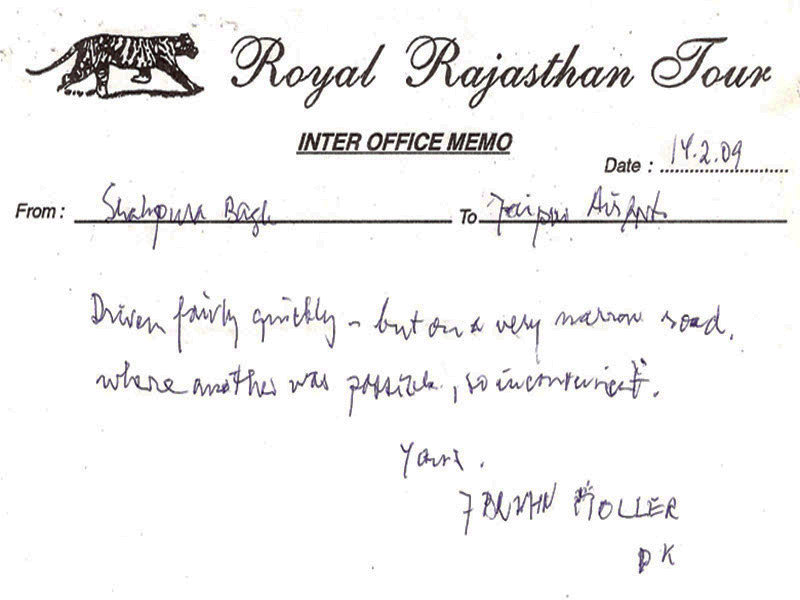 Royal Rajasthan Tour
INTER OFFICE MEMO
Date : 14.2.09
From : Shahpura Bagh To Jaipur Airport
Driven fairly quickly - but on a very narrow road,
where another was possible, so inconvenient.
Yours.
MOLLER
DK